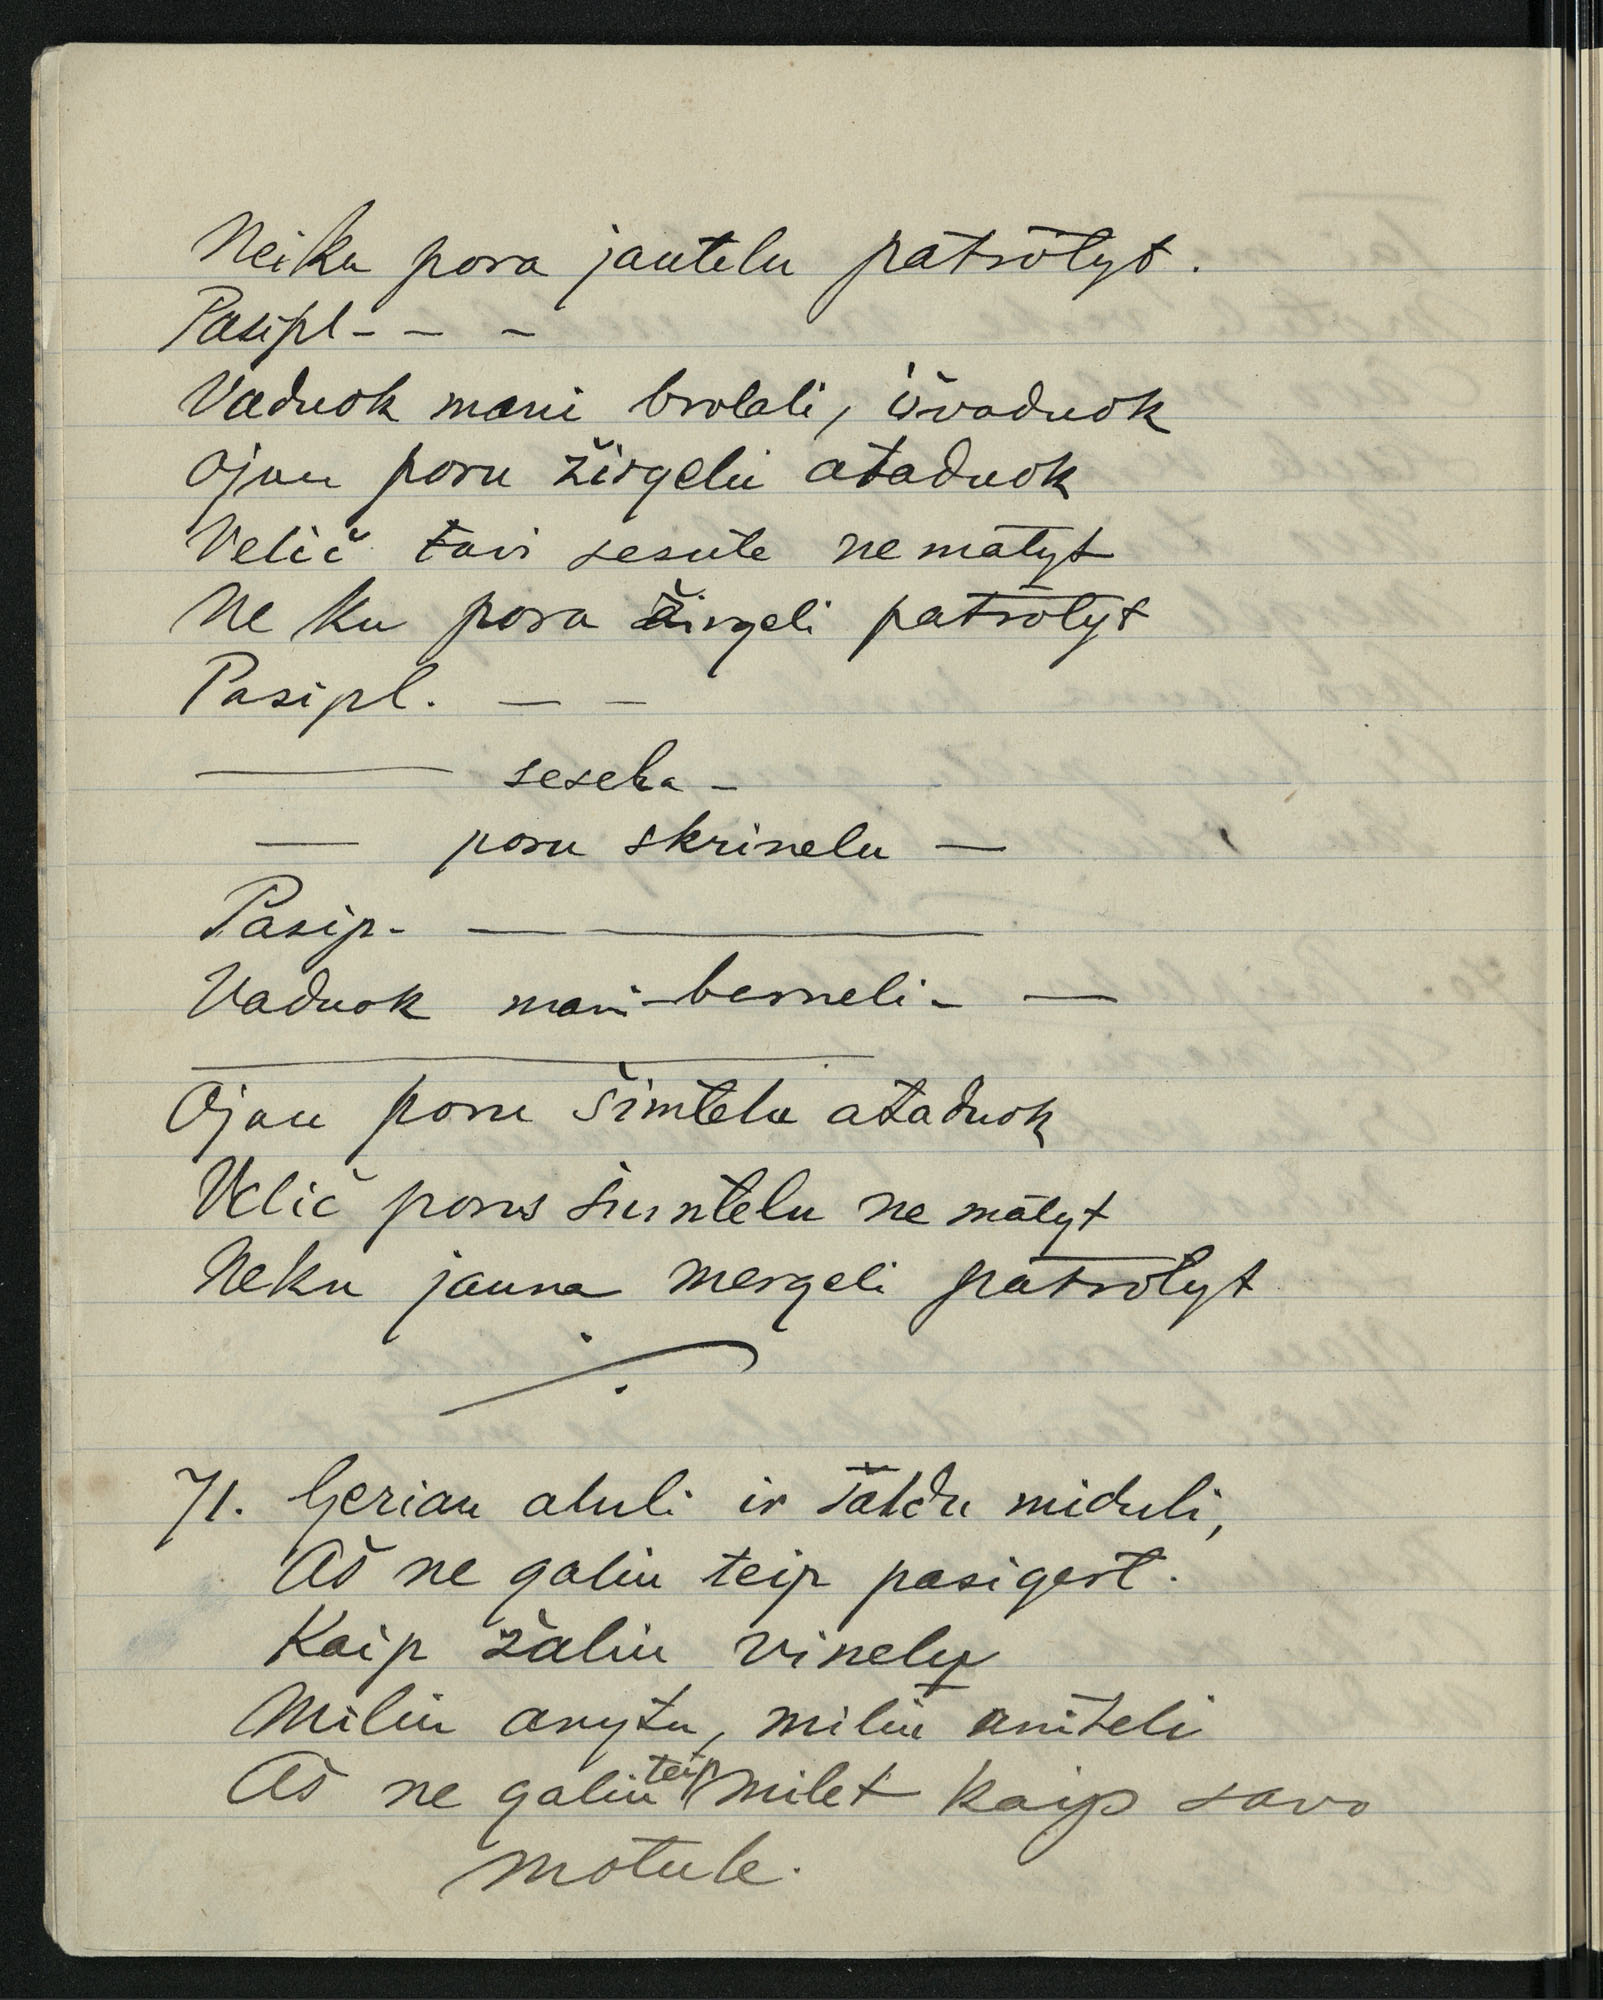 Neiku pora jautelu patrotyt.
Pasipl - - -
Vaduok mani brolali, išvaduok
Ojau poru žirgeliu ataduok
Velič tavi sesute ne matyt
Ne ku pora žirgeli patrotyt
Pasipl. — —
— seseka -
— poru skrinelu —
Pasip. — —
Vaduok mani berneli - —
Ojau poru šimtelu ataduok
Velič porus šimtelu ne matyt
Neku jauna mergeli patrotyt
71. Geriau aluli ir saldu miduli,
Aš ne galiu teip pasigert.
Kaip žaliu vinely
Miliu anytu, miliu aniteli
Aš ne galiu teip milet kaip savo
motule.